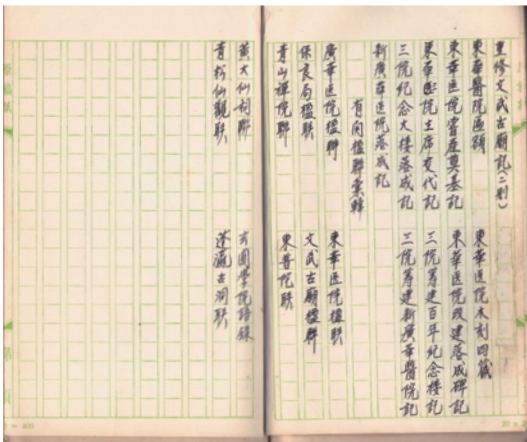 重修文武古廟記(二則)
東華醫院匾額 東華医院木刻四箴
東華医院座奠基記 東華医院改建落成碑記
東華医院主席交代記 三院籌建百年纪念楼記
三院纪念大楼落成記 三院籌建新廣華醫院記
新廣華医院落成記
有関楹聯彙輯
廣華医院楹聯 東華医院楹联
保良局楹联 文武古廟楹聯
青山禪院聯 東普陀联
黄大仙祠聯 玄圓學院語錄
青松仙觀联 蓬瀛古洞联